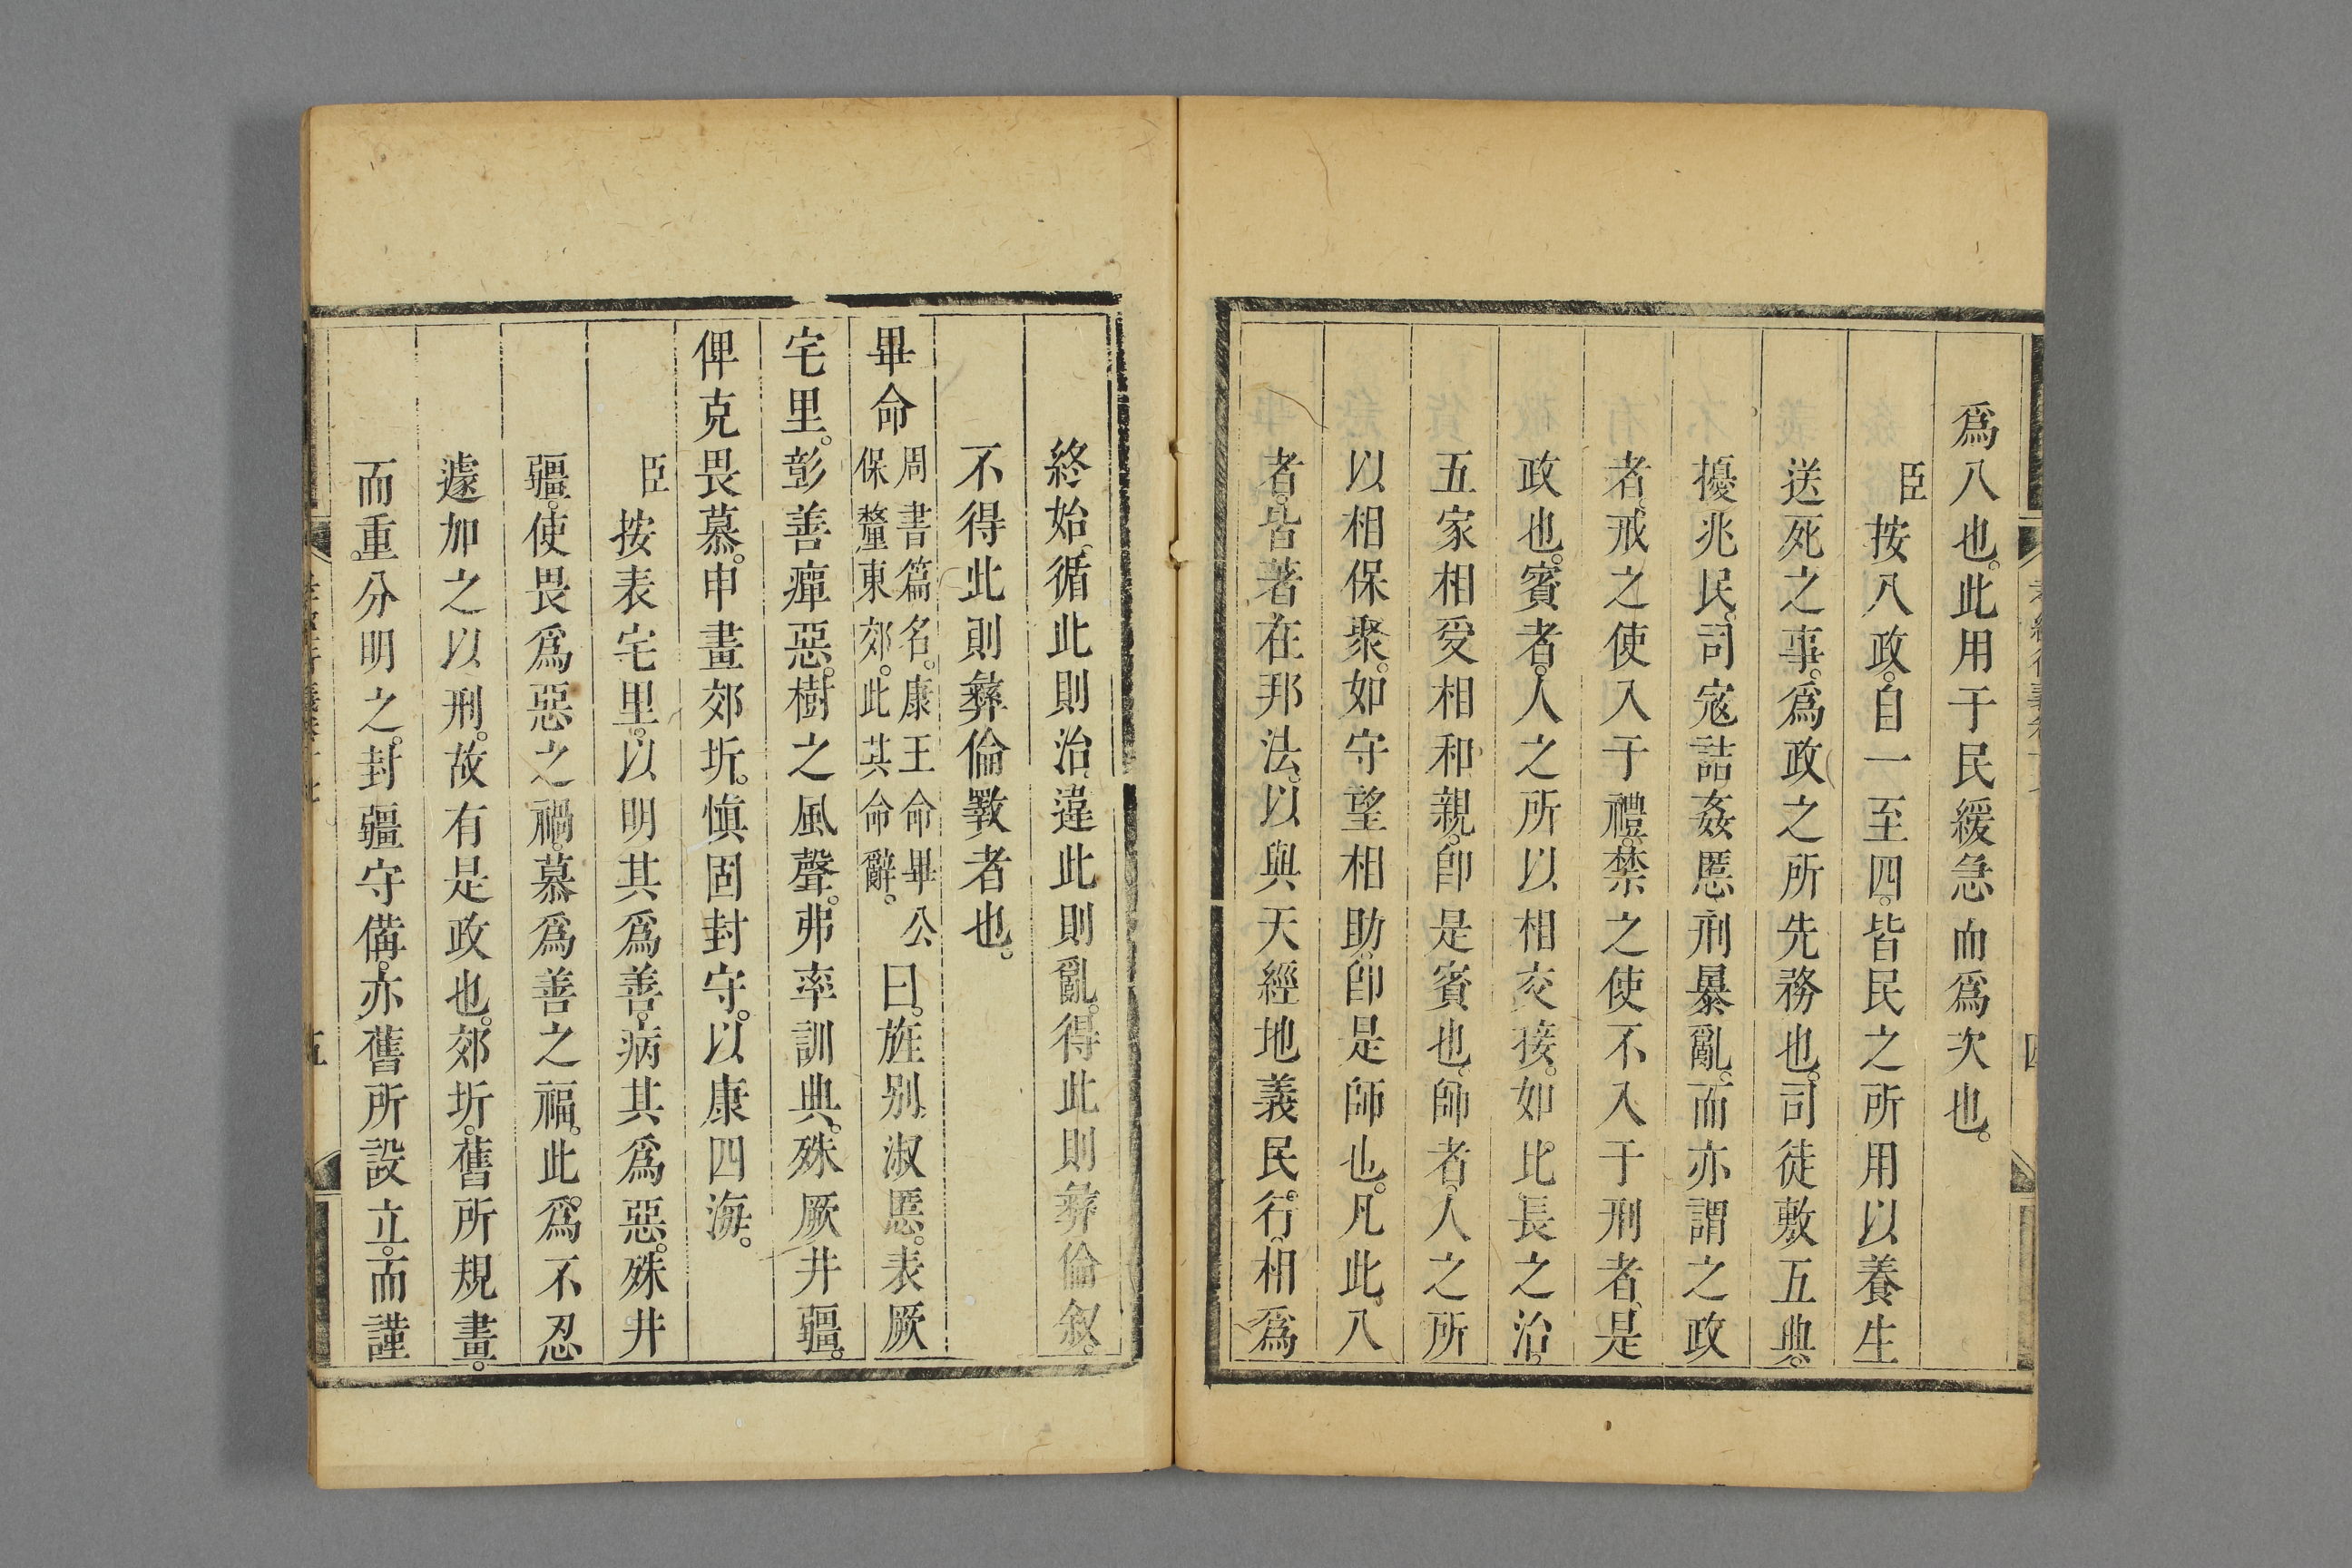 爲八也。此用于民緩急而爲次也。
臣按八政。自一至四。皆民之所用以養生
送死之事。爲政之所先務也。司徒敷五典。
擾兆民。司寇詰姦慝。刑暴亂。而亦謂之政
者。戒之使入于禮。禁之使不入于刑者。是
政也。賓者。人之所以相交接。如比長之治。
五家相受相和親。卽是賓也。師者。人之所
以相保聚。如守望相助。卽是師也。凡此八
者。皆著在邦法。以與天經地義民行。相爲
終始。循此則治。違此則亂。得此則彝倫敘。
不得此則彝倫斁者也。
畢命周書篇名。康王命畢公保釐東郊。此其命辭。曰。旌别淑慝。表厥
宅里。彰善癉惡。樹之風聲。弗率訓典。殊厥井疆。
俾克畏慕。申畫郊圻。愼固封守。以康四海。
臣按表宅里。以明其爲善。病其爲惡。殊井
疆。使畏爲惡之禍。慕爲善之福。此爲不忍
遽加之以刑。故有是政也。郊圻。舊所規畫。
而重分明之。封疆守備。亦舊所設立。而謹
五